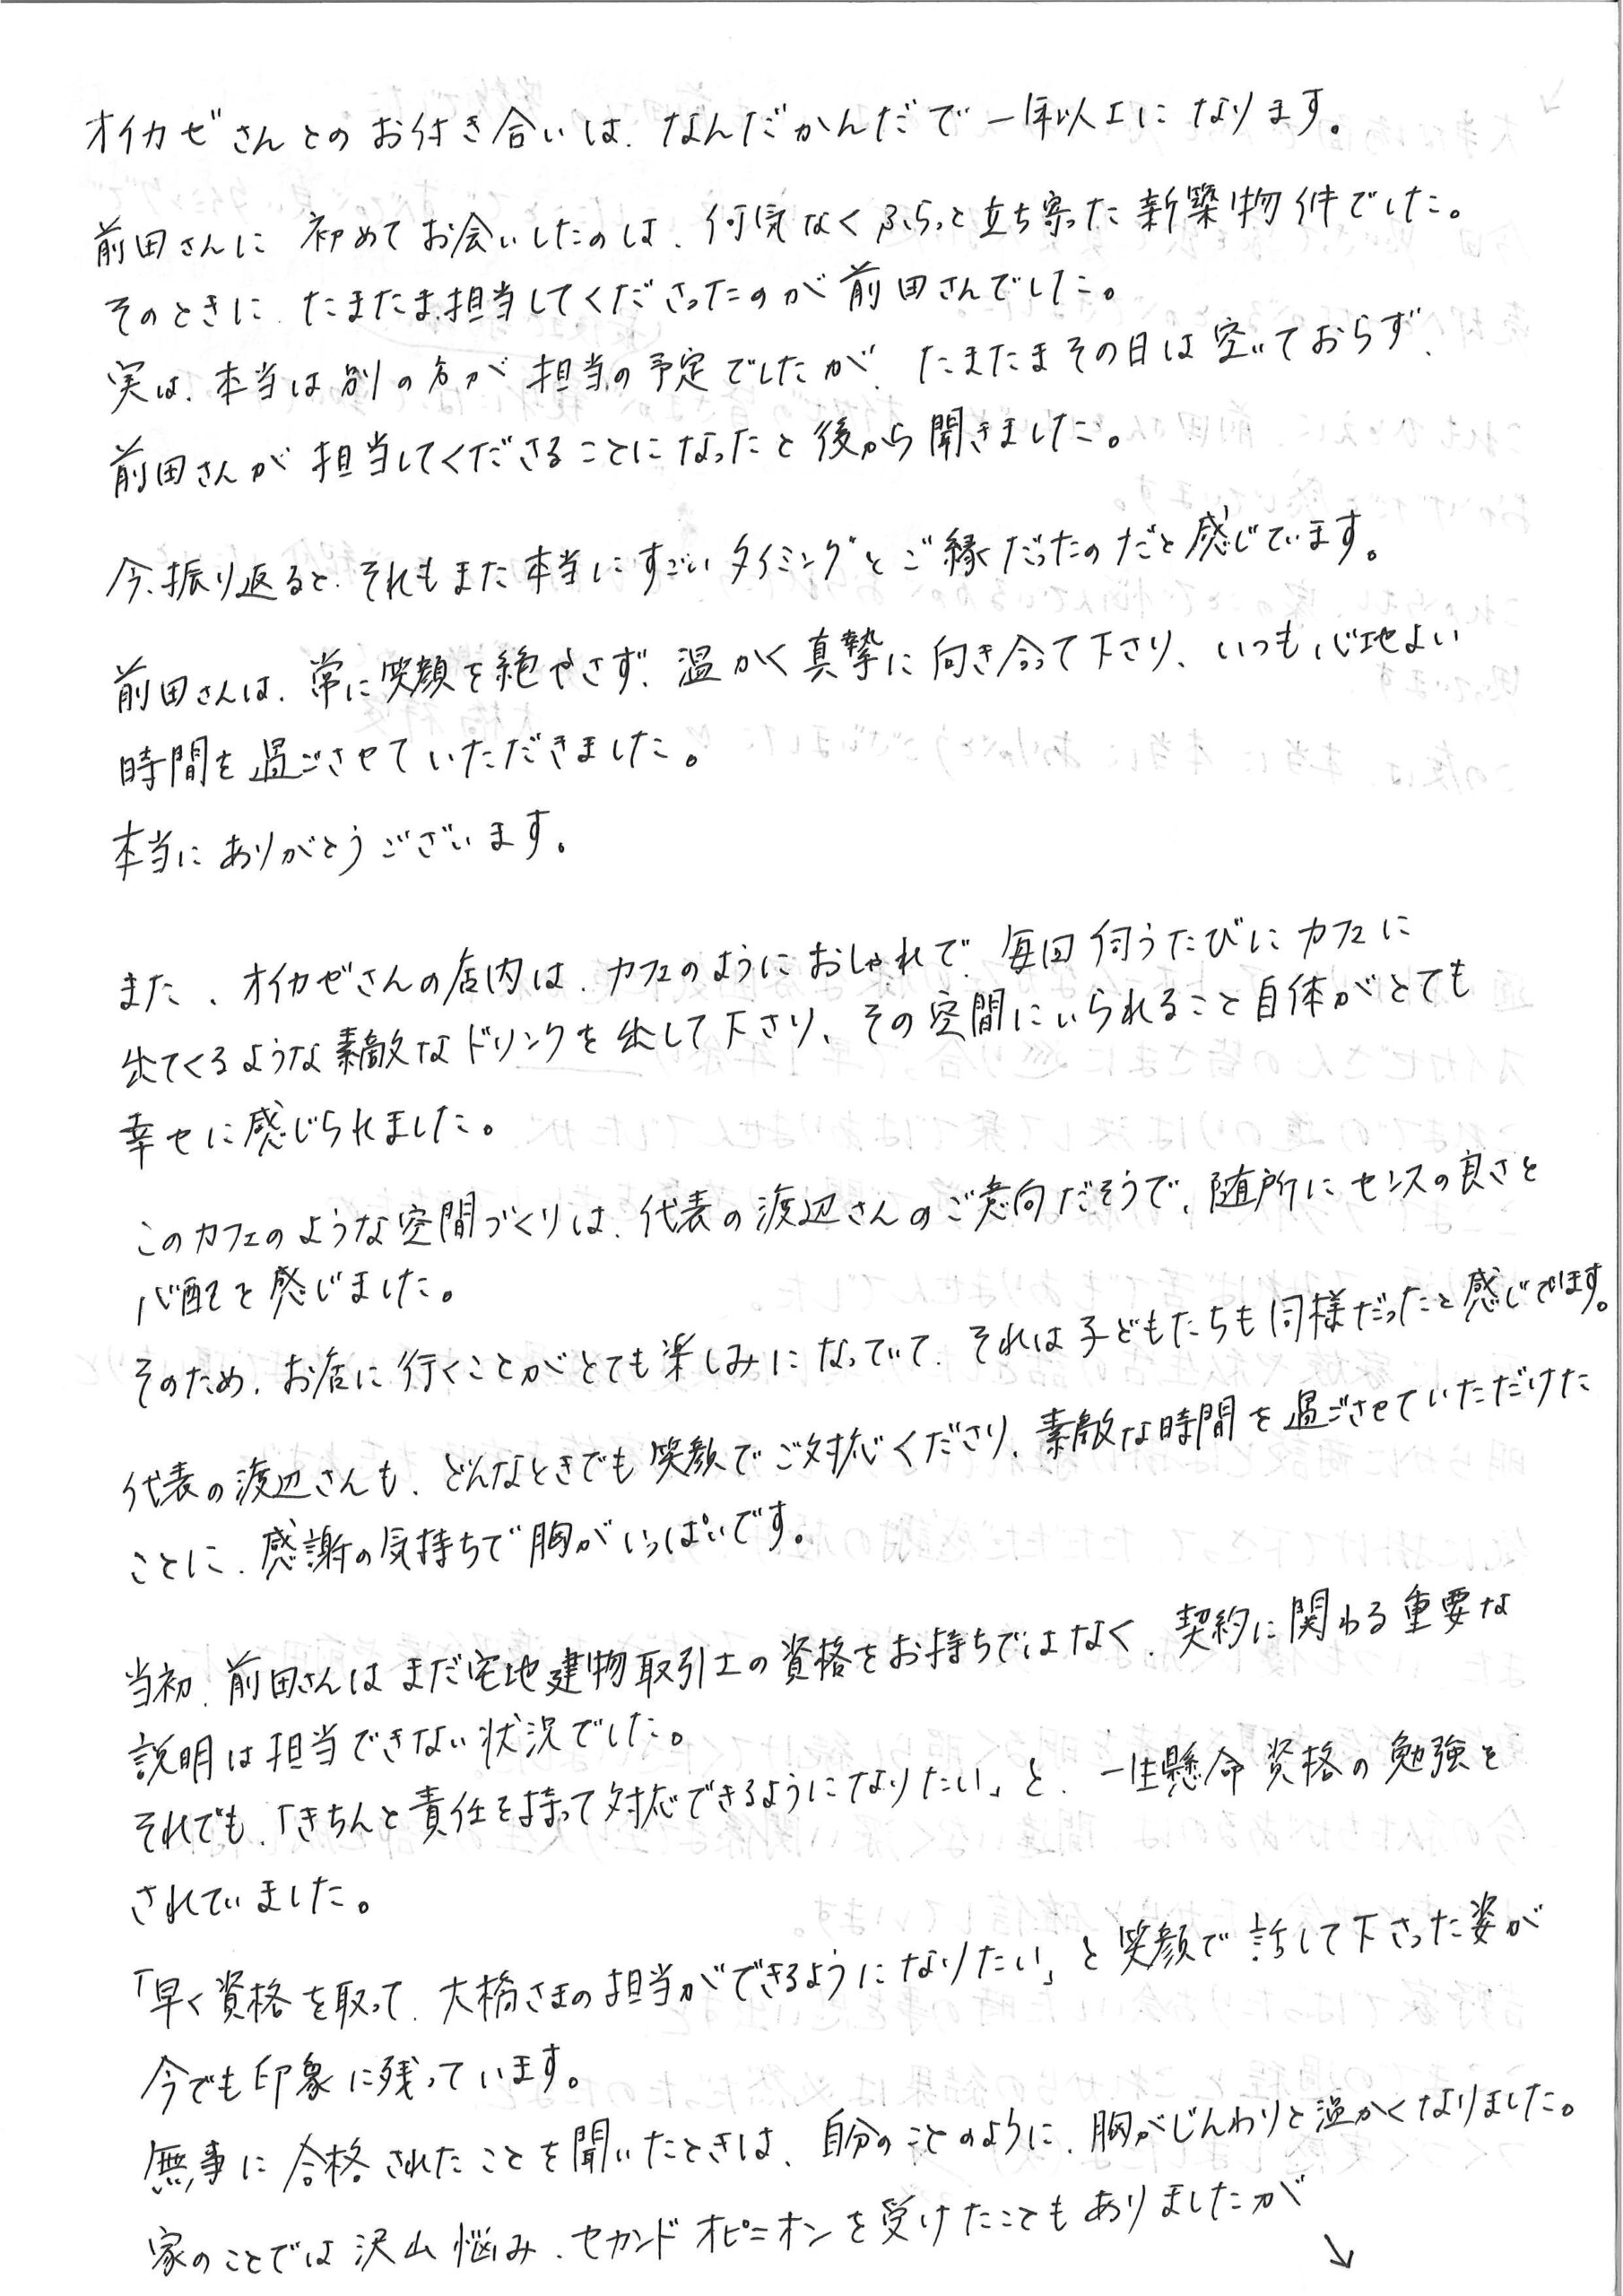 オイカゼさんとのお付き合いは、なんだかんだで一年以上になります。
前田さんに初めてお会いしたのは、何気なくふらっと立ち寄った新築物件でした。
そのときに、たまたま担当してくださったのが前田さんでした。
実は、本当は別の方が担当の予定でしたが、たまたまその日は空いておらず、
前田さんが担当してくださることになったと後から聞きました。
今、振り返ると、それもまた本当にすごいタイミングとご縁だったのだと感じています。
前田さんは、常に笑顔を絶やさず、温かく真摯に向き合って下さり、いつも心地よい
時間を過ごさせていただきました。
本当にありがとうございます。
また、オイカゼさんの店内は、カフェのようにおしゃれで、毎回伺うたびにカフェに
出てくるような素敵なドリンクを出して下さり、その空間にいられること自体がとても
幸せに感じられました。
このカフェのような空間づくりは、代表の渡辺さんのご意向だそうで、随所にセンスの良さと
心配を感じました。
そのため、お店に行くことがとても楽しみになっていて、それは子どもたちも同様だったと感じています。
代表の渡辺さんも、どんなときでも笑顔でご対応くださり、素敵な時間を過ごさせていただけた
ことに、感謝の気持ちで胸がいっぱいです。
当初、前田さんはまだ宅地建物取引士の資格をお持ちではなく、契約に関わる重要な
説明は担当できない状況でした。
それでも、「きちんと責任を持って対応できるようになりたい」と、一生懸命資格の勉強を
されていました。
「早く資格を取って、大橋さまの担当ができるようになりたい」と笑顔で話して下さった姿が
今でも印象に残っています。
無事に合格されたことを聞いたときは、自分のことのように、胸がじんわりと温かくなりました。
家のことでは沢山悩み、セカンドオピニオンを受けたこともありましたが
↘